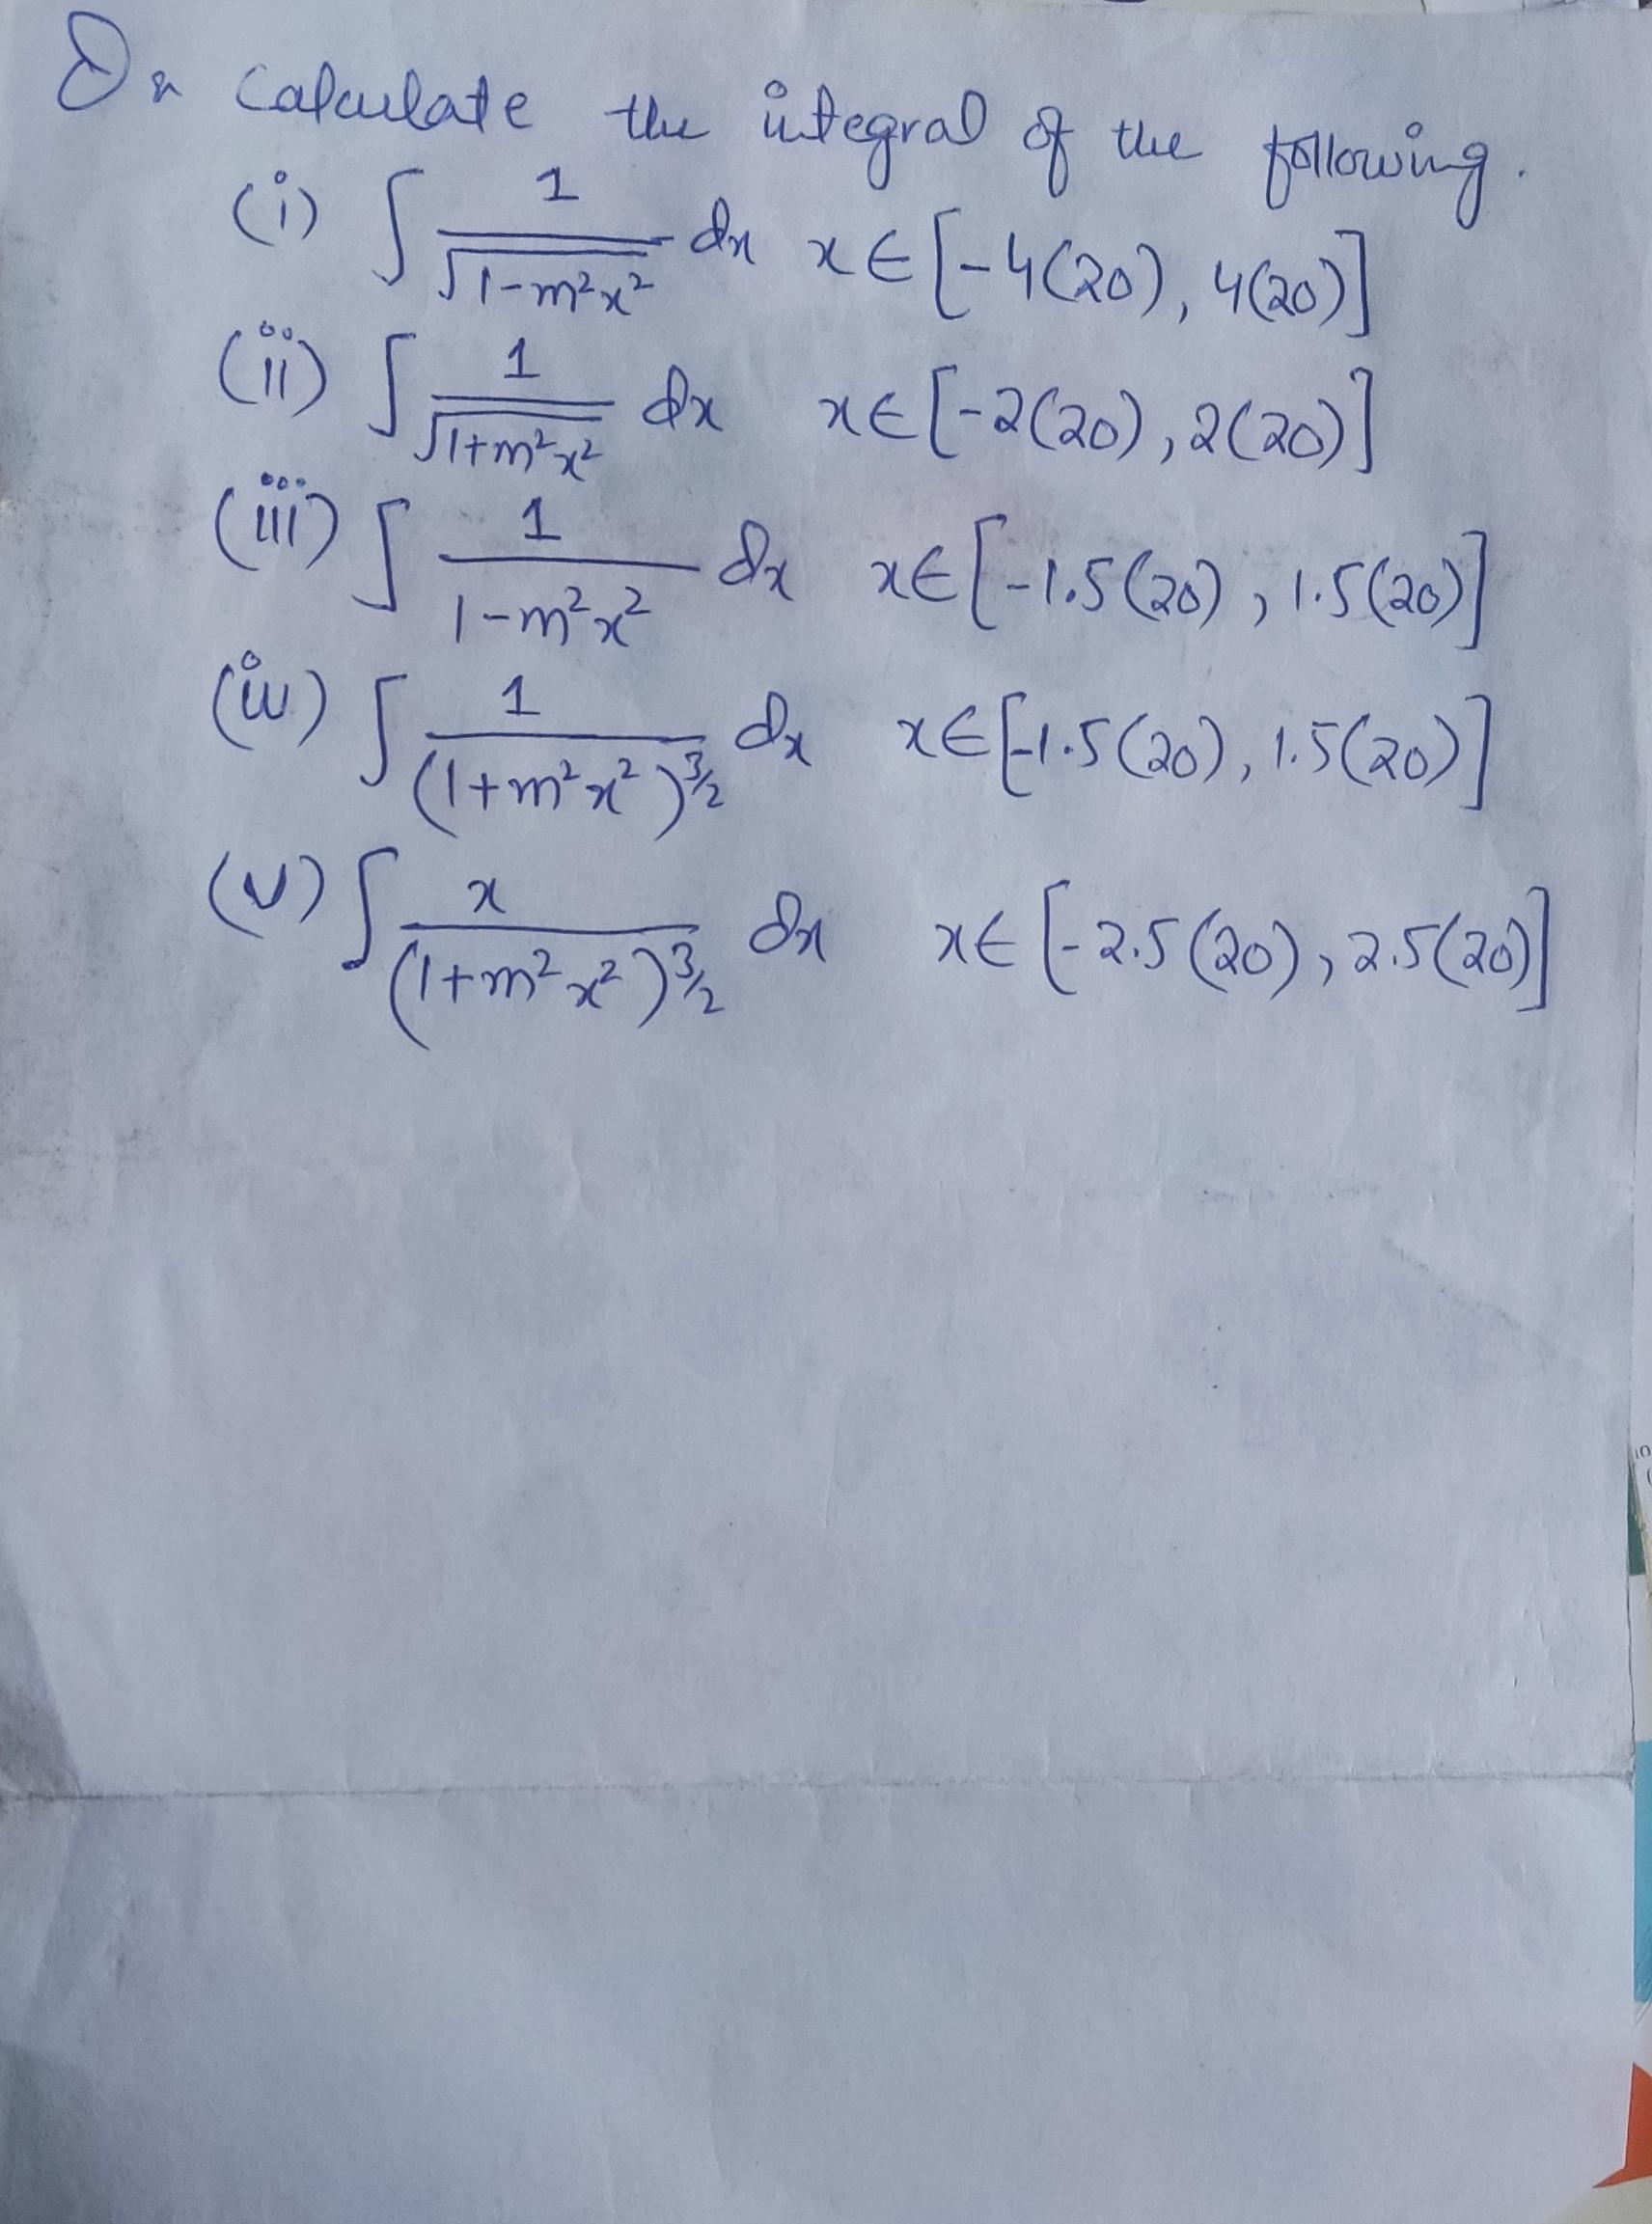 Q. Calculate the integral of the following.
(i) ∫ 1/√(1-m²x²) dx x∈[-4(20), 4(20)]
(ii) ∫ 1/√(1+m²x²) dx x∈[-2(20), 2(20)]
(iii) ∫ 1/(1-m²x²) dx x∈[-1.5(20), 1.5(20)]
(iv) ∫ 1/(1+m²x²)^3/2 dx x∈[-1.5(20), 1.5(20)]
(v) ∫ x/(1+m²x²)^3/2 dx x∈[-2.5(20), 2.5(20)]